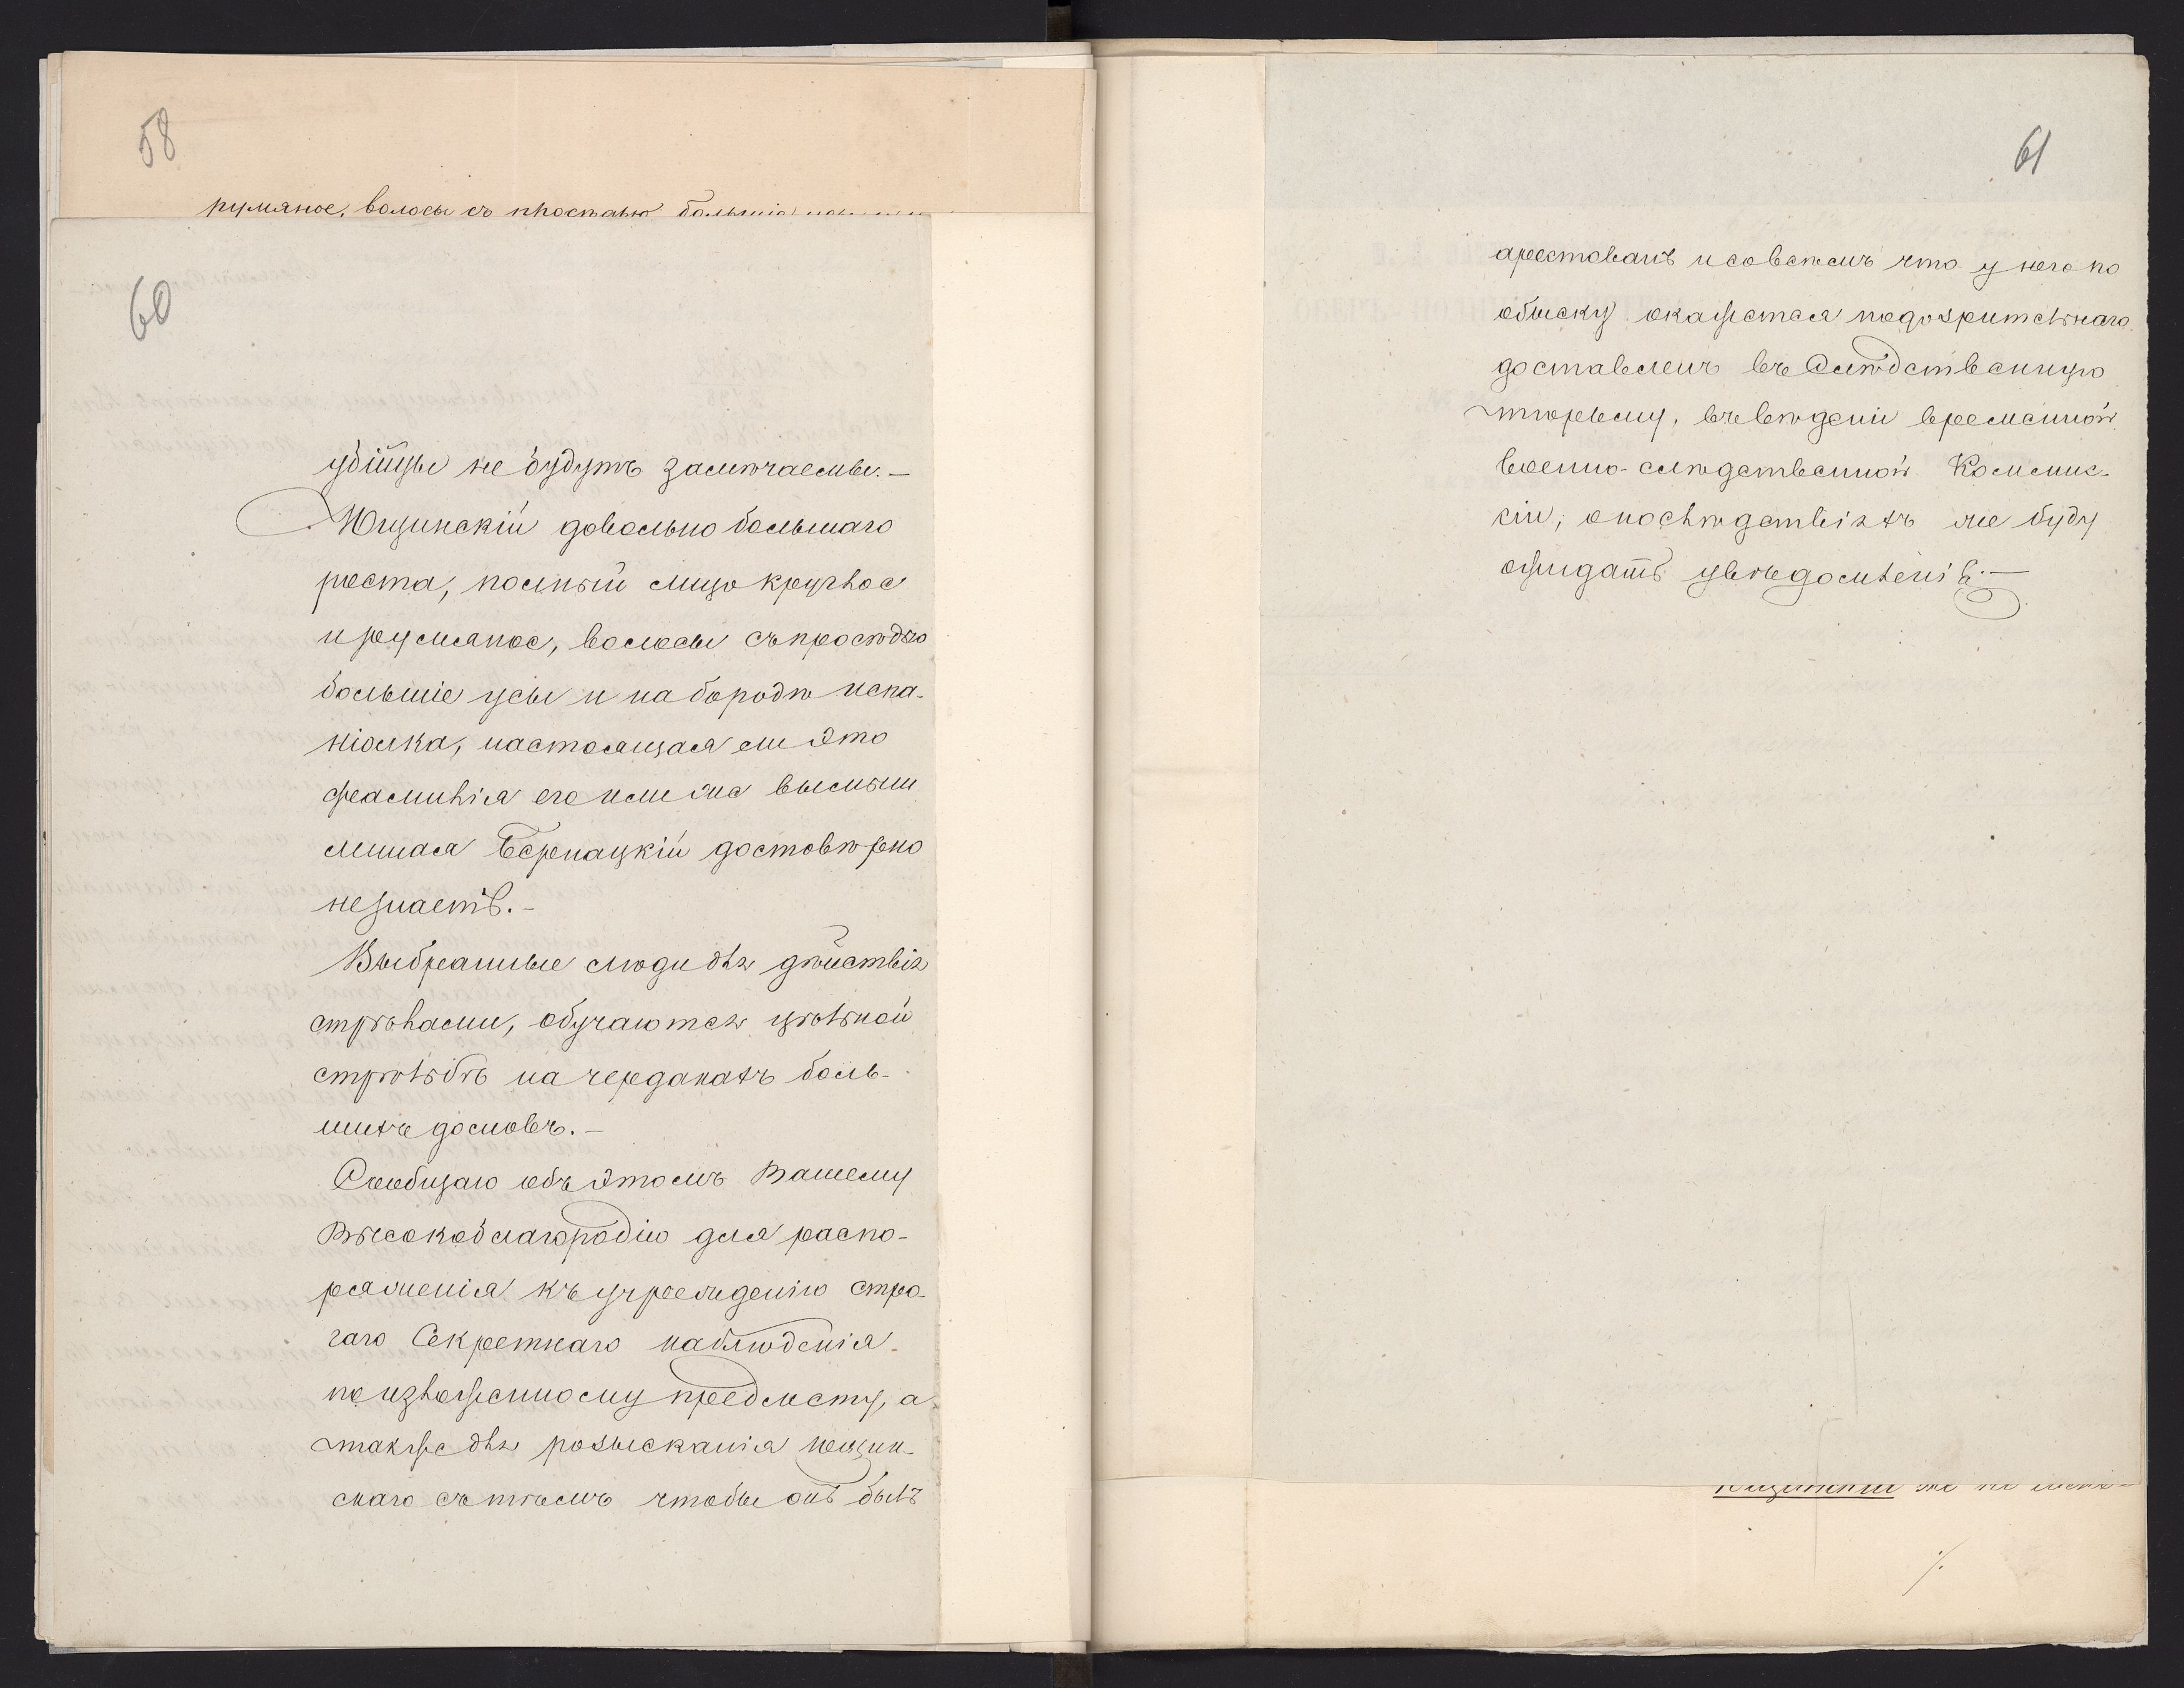 58
румяное, волосы съ просѣдью большіе
60
убійцы не будутъ замѣчаемы. —
Ющинскій довольно большаго
роста, полный лицо круглое
и румяное, волосы съ просѣдью
большіе усы и на бородѣ испа-
ніолка, настоящая ли это
фамилія его или же вымыш
ленная Бернацкій достовѣрно
незнаетъ. —
Выбранные люди для дѣйствія
стрѣлами, обучаются цѣльной
стрѣльбѣ на чердакахъ боль-
шихъ домовъ. —
Сообщаю объ этомъ Вашему
Высокоблагородію для распо-
ряженія къ учрежденію стро-
гаго Секретнаго наблюденія
по изложенному предмету, а
также для розысканія Ющин-
скаго съ тѣмъ чтобы онъ былъ
61
арестованъ и со всѣмъ что у него по
обыску окажется подозрительнаго
доставленъ въ Слѣдственную
тюрьму, въ вѣденіи временной
военно-слѣдственной Коммис-
сіи; о послѣдствіяхъ же буду
ожидать увѣдомленія. —
Ющинскій же не